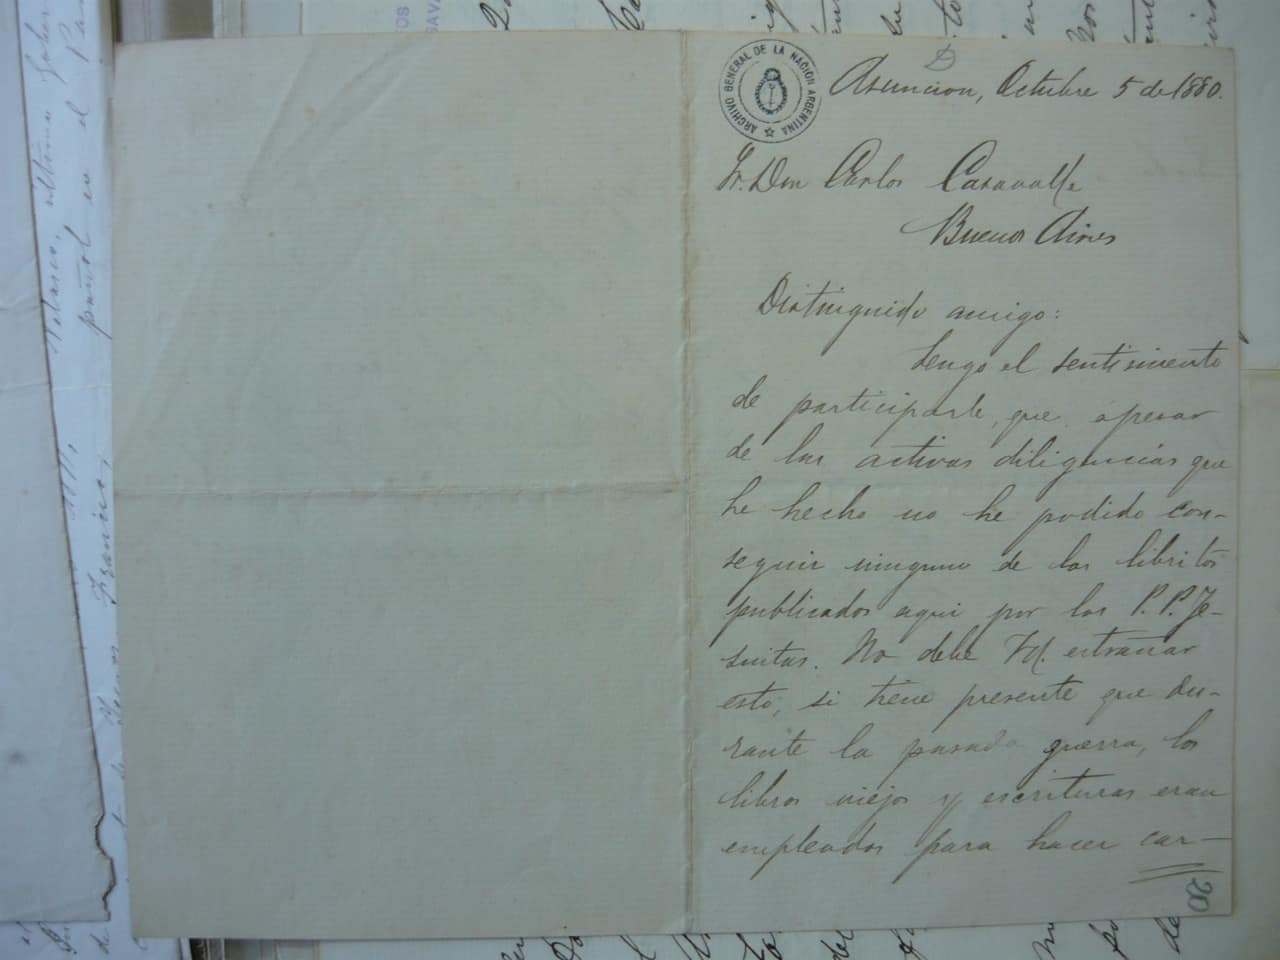 ARCHIVO GENERAL DE LA NACION ARGENTINA
Asuncion, Octubre 5 de 1880.
Sr. Don Carlos Casavalle
Buenos Aires
Distinguido amigo:
Tengo el sentimiento
de participarle, que apesar
de las activas diligencias que
he hecho no he podido con-
seguir ninguno de los libritos
publicados aqui por los P.P. Je-
suitas. No debe Vd. estrañar
esto, si tiene presente que du-
rante la pasada guerra, los
libros viejos y escrituras eran
empleados para hacer car-
20